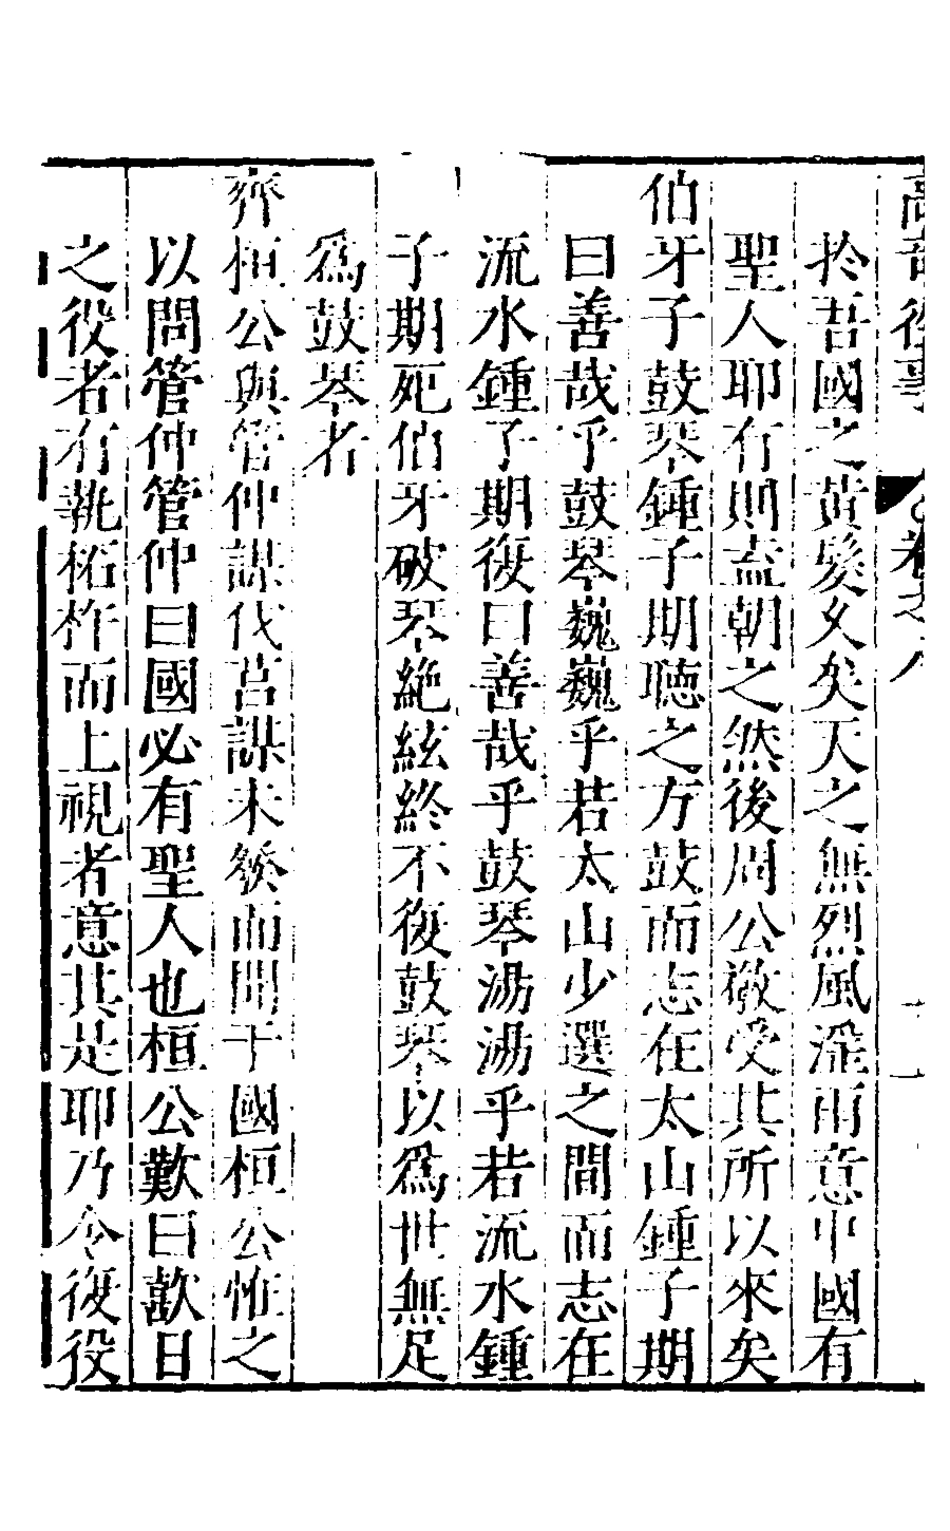 扵吾國之黃髮乆矣天之無烈風滛雨意中國有
聖人耶有則盍朝之然後周公敬受其所以來矣
伯牙子鼓琴鍾子期聴之方鼓而志在太山鍾子期
曰善哉乎鼓琴巍巍乎若太山少選之間而志在
流水鍾子期復曰善哉乎鼓琴湯湯乎若流水鍾
子期死伯牙破琴絶絃終不復鼓琴以爲世無足
爲鼓琴者
齊桓公與管仲謀伐莒謀未發而聞于國桓公恠之
以問管仲管仲曰國必有聖人也桓公歎曰歖日
之役者有執柘杵而上視者意其是耶乃令復役